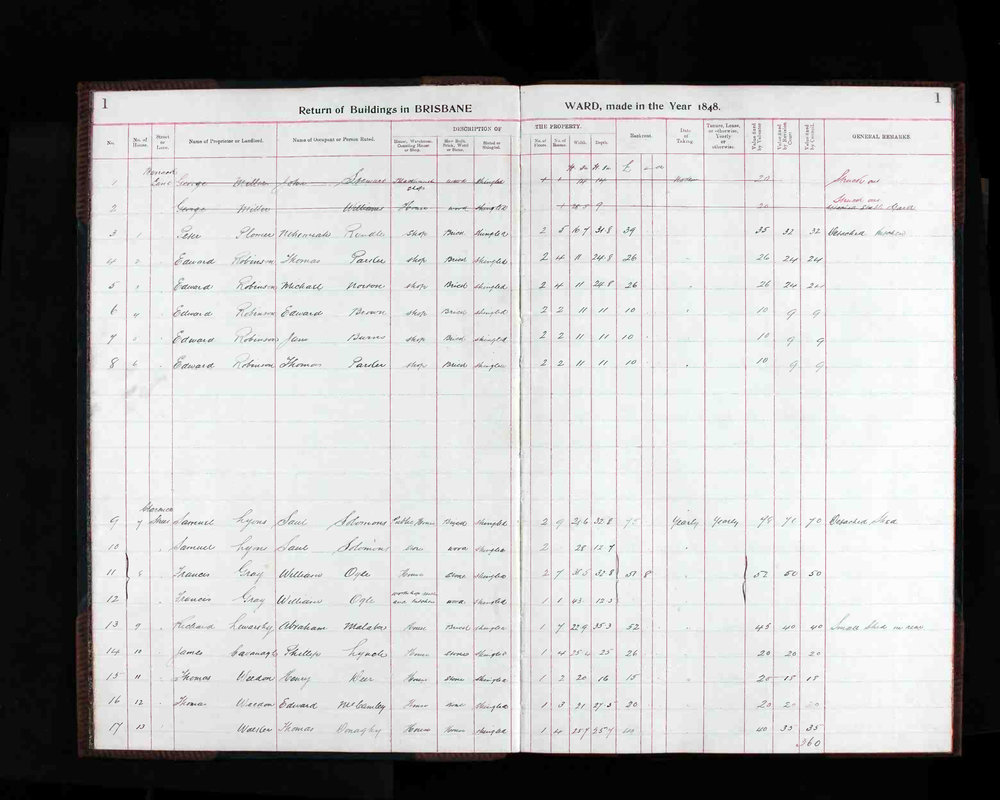 1
Return of Buildings in BRISBANE WARD, made in the Year 1848.
1
DESCRIPTION OF THE PROPERTY.
No. No. of House. Street or Lane. Name of Proprietor or Landlord. Name of Occupant or Person Rated. House, Warehouse, Counting House or Shop. How Built, Brick, Wood or Stone. Slated or Shingled. No. of Floors. No. of Rooms. Width. Depth. Rackrent. Date of Taking. Tenure, Lease, or otherwise, Yearly or otherwise. Value fixed by Valuator Value fixed by Revision Court Value fixed by Council. GENERAL REMARKS.
£
1 Lane George Miller John wood shingled 20 Struck out
2 George Miller Williams House wood shingled 9 20 Struck out
3 1 Peter Plomer Nehemiah Rundle shop Brick shingled 2 5 16 7 31 8 39 35 32 32 Detached Kitchen
4 2 Edward Robinson Thomas shop Brick shingled 2 4 11 24.8 26 26 24 24
5 Edward Robinson Michael shop Brick shingled 2 4 11 24.8 26 26 24 24
6 4 Edward Robinson Edward Brown shop Brick shingled 2 2 11 11 10 10 9 9
7 Edward Robinson Jane Burns shop Brick shingled 2 2 11 11 10 10 9 9
8 6 Edward Robinson Thomas shop Brick shingled 2 2 11 11 10 10 9 9
9 7 Street Samuel Lyons Saul Solomons Public House shingled 2 9 32 8 75 Yearly Yearly 78 70 Detached Shed
10 Samuel Lyons Saul Solomons Store wood shingled 2 28 12 7
11 8 Francis Gray William Ogle House Stone shingled 2 7 32 8 51 8 52 50 50
12 Francis Gray William Ogle and kitchen wood shingled 1 1 43 12 3
13 9 Richard Abraham House Brick shingled 1 7 22 9 35 3 52 45 40 40 Small Shed in rear
14 10 James Cavanagh Phillip Lynch House Stone shingled 1 4 25 4 25 26 20 20 20
15 11 Thomas Weedon Henry House Stone shingled 1 2 20 16 15 20 18 18
16 12 Thomas Weedon Edward McCamley House shingled 1 3 21 27 5 20 20 20 20
17 13 Thomas Donaghy House shingled 1 4 25 7 25 7 40 40 35 35
360